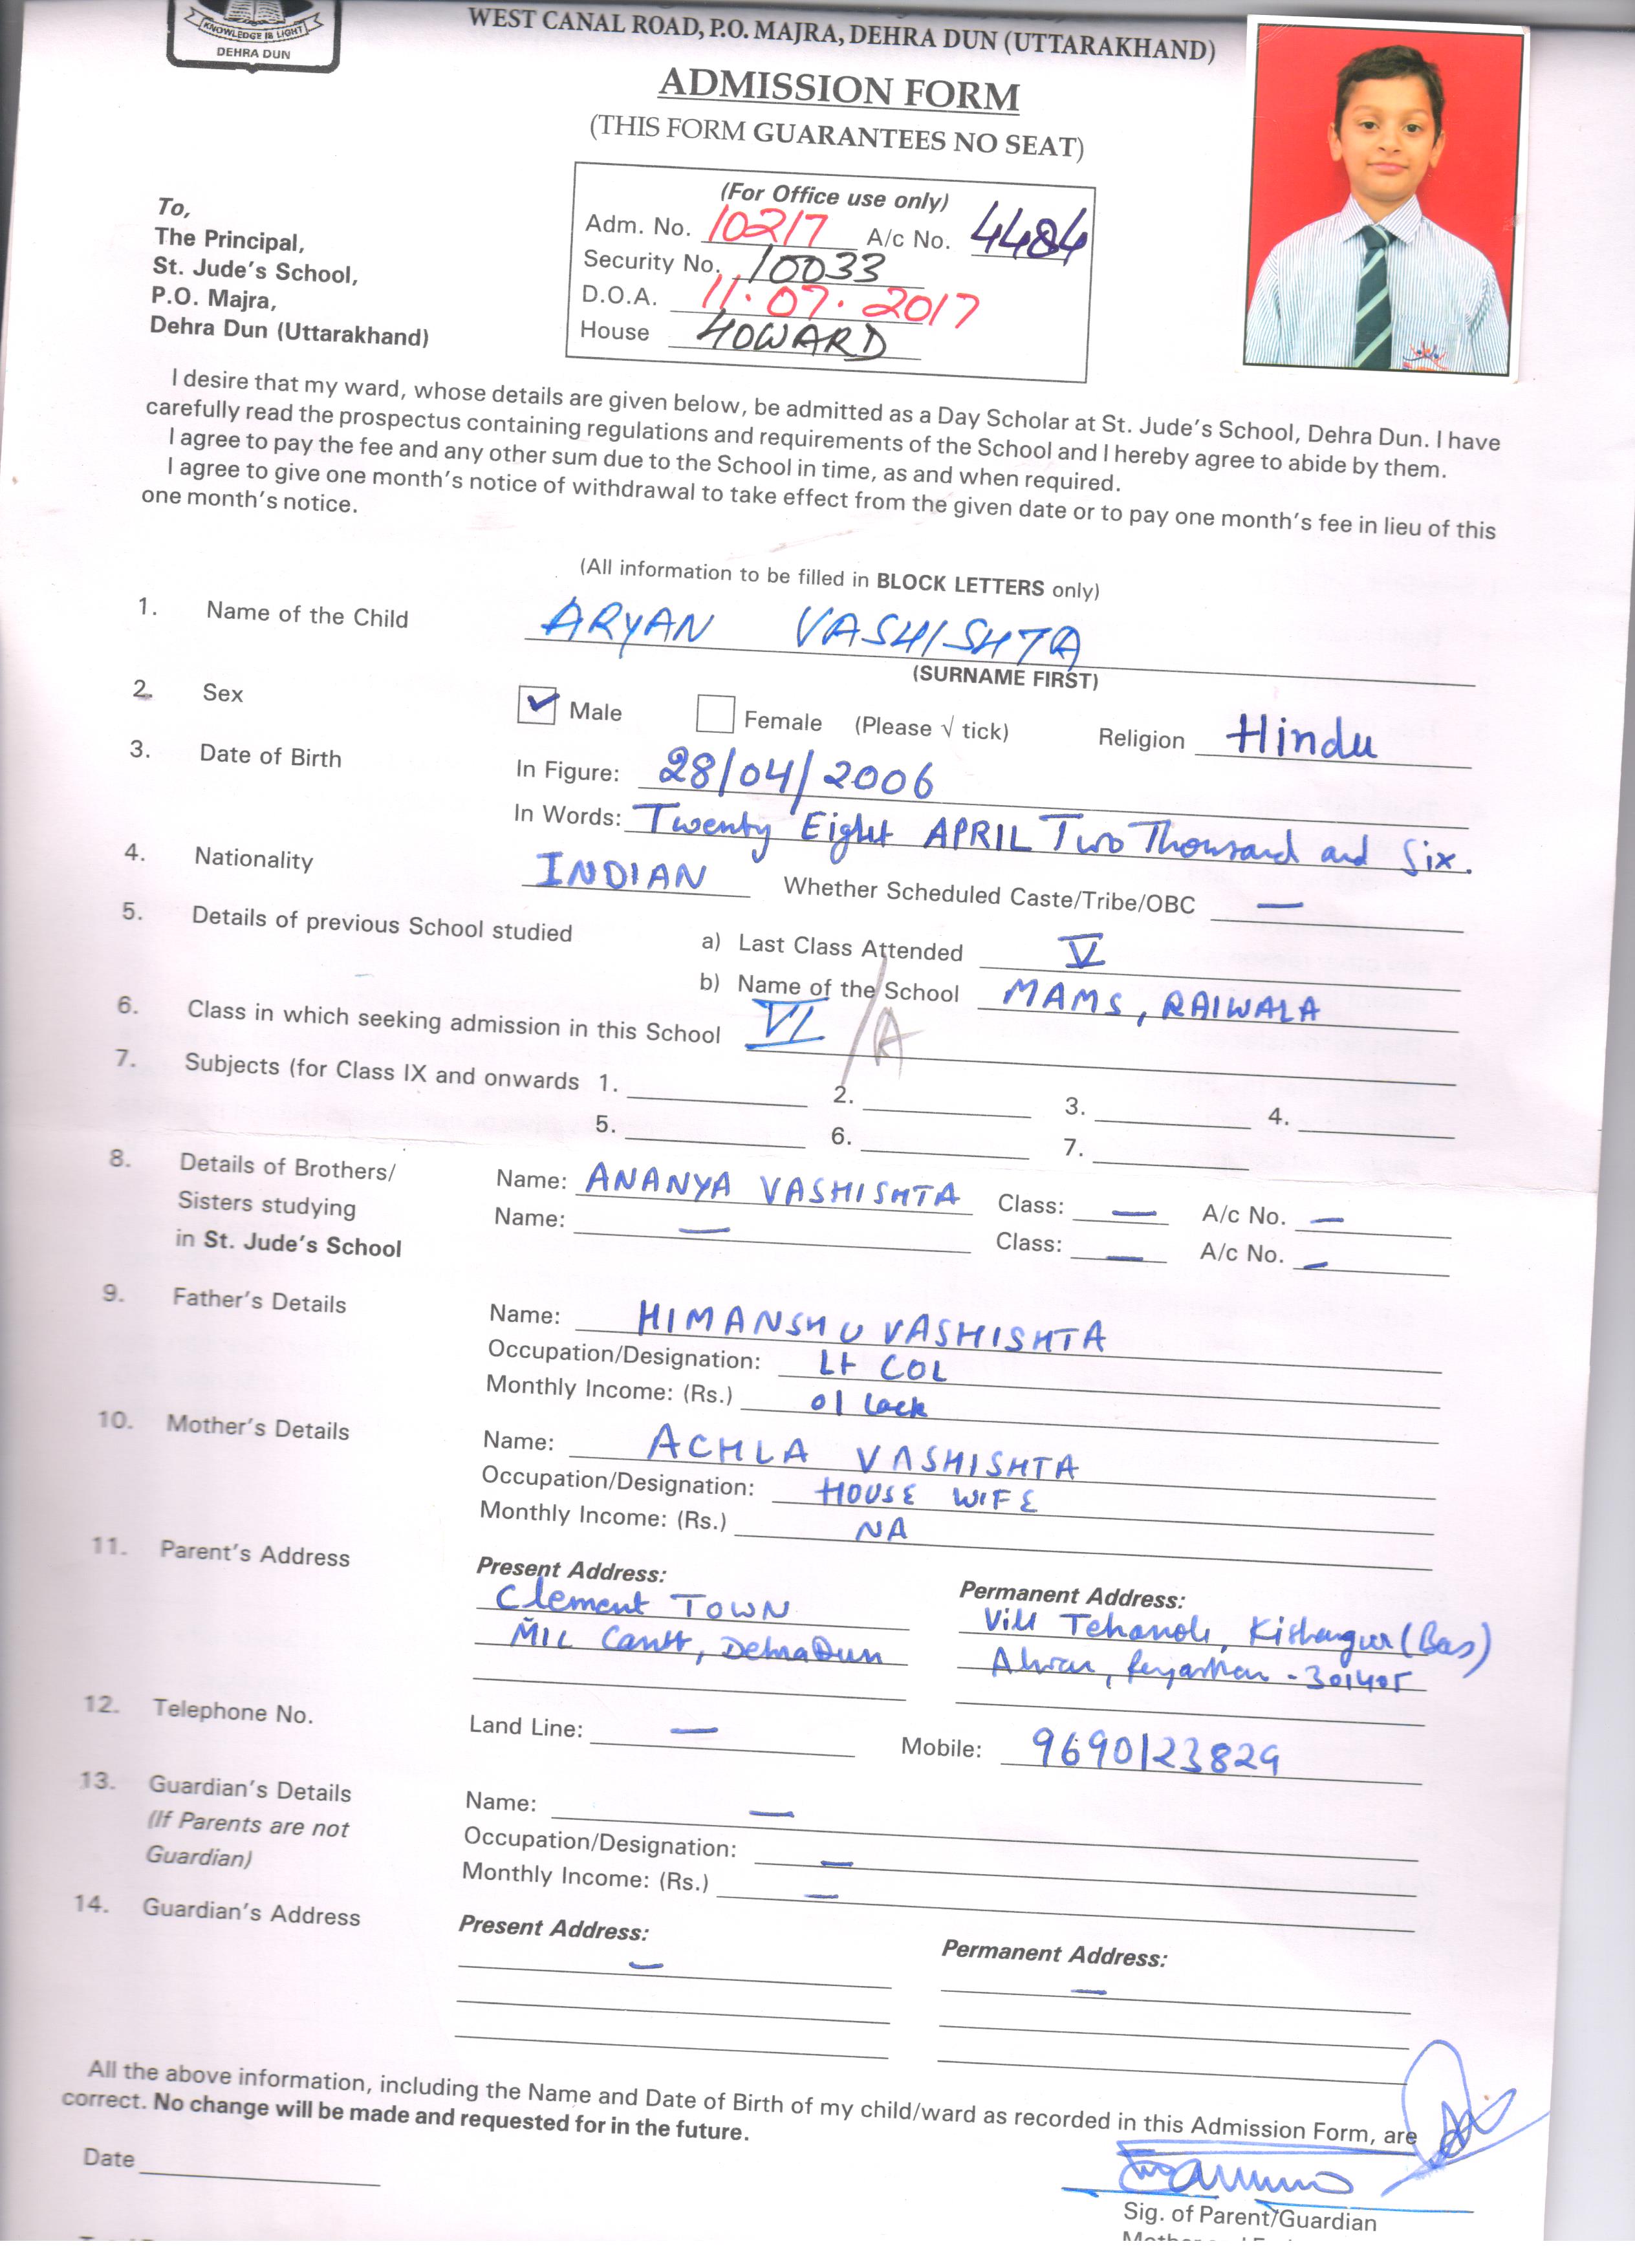 KNOWLEDGE IS LIGHT
DEHRA DUN
WEST CANAL ROAD, P.O. MAJRA, DEHRA DUN (UTTARAKHAND)
ADMISSION FORM
(THIS FORM GUARANTEES NO SEAT)
(For Office use only)
Adm. No. 10217 A/c No. 4484
Security No. 10033
D.O.A. 11.07.2017
House HOWARD
To,
The Principal,
St. Jude's School,
P.O. Majra,
Dehra Dun (Uttarakhand)
I desire that my ward, whose details are given below, be admitted as a Day Scholar at St. Jude's School, Dehra Dun. I have
carefully read the prospectus containing regulations and requirements of the School and I hereby agree to abide by them.
I agree to pay the fee and any other sum due to the School in time, as and when required.
I agree to give one month's notice of withdrawal to take effect from the given date or to pay one month's fee in lieu of this
one month's notice.
(All information to be filled in BLOCK LETTERS only)
1. Name of the Child ARYAN VASHISHTA
(SURNAME FIRST)
2. Sex ✓ Male Female (Please √ tick) Religion Hindu
3. Date of Birth In Figure: 28/04/2006
In Words: Twenty Eight APRIL Two Thousand and Six.
4. Nationality INDIAN Whether Scheduled Caste/Tribe/OBC —
5. Details of previous School studied a) Last Class Attended V
b) Name of the School MAMS, RAIWALA
6. Class in which seeking admission in this School VI /A
7. Subjects (for Class IX and onwards 1. 2. 3. 4.
5. 6. 7.
8. Details of Brothers/ Name: ANANYA VASHISHTA Class: — A/c No. —
Sisters studying Name: — Class: — A/c No. —
in St. Jude's School
9. Father's Details Name: HIMANSHU VASHISHTA
Occupation/Designation: Lt COL
Monthly Income: (Rs.) 01 Lack
10. Mother's Details Name: ACHLA VASHISHTA
Occupation/Designation: HOUSE WIFE
Monthly Income: (Rs.) NA
11. Parent's Address Present Address: Permanent Address:
Clement TOWN Vill Kishangur (Bas)
MIL Cantt, DehraDun Alwar, Rajasthan - 301405
12. Telephone No. Land Line: — Mobile: 9690123829
13. Guardian's Details Name: —
(If Parents are not Occupation/Designation: —
Guardian) Monthly Income: (Rs.) —
14. Guardian's Address Present Address: Permanent Address:
— —
All the above information, including the Name and Date of Birth of my child/ward as recorded in this Admission Form, are
correct. No change will be made and requested for in the future.
Date
Sig. of Parent/Guardian